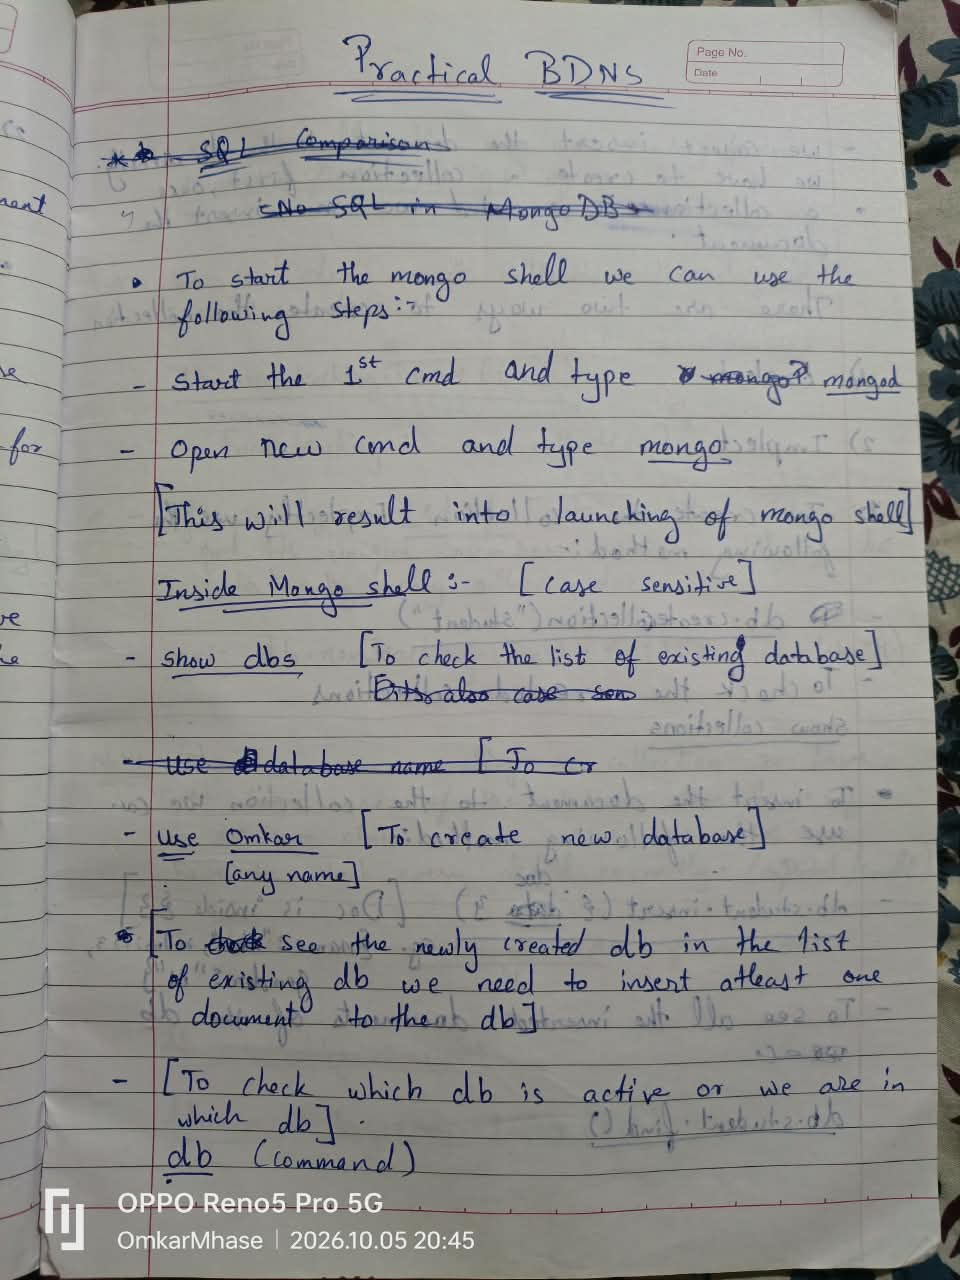 Practical BDNS
Page No.
Date
SQL Comparison
No SQL in MongoDB
• To start the mongo shell we can use the
following steps:-
- Start the 1st cmd and type mongo mongod
- Open new cmd and type mongo
[This will result into launching of mongo shell]
Inside Mongo shell :- [case sensitive]
- show dbs [To check the list of existing database]
Its also case sen
- use database name [To cr
- use Omkar [To create new database]
[any name]
• [To check see the newly created db in the list
of existing db we need to insert atleast one
document to the db]
- [To check which db is active or we are in
which db].
db (command)
ment
for
OPPO Reno5 Pro 5G
OmkarMhase | 2026.10.05 20:45